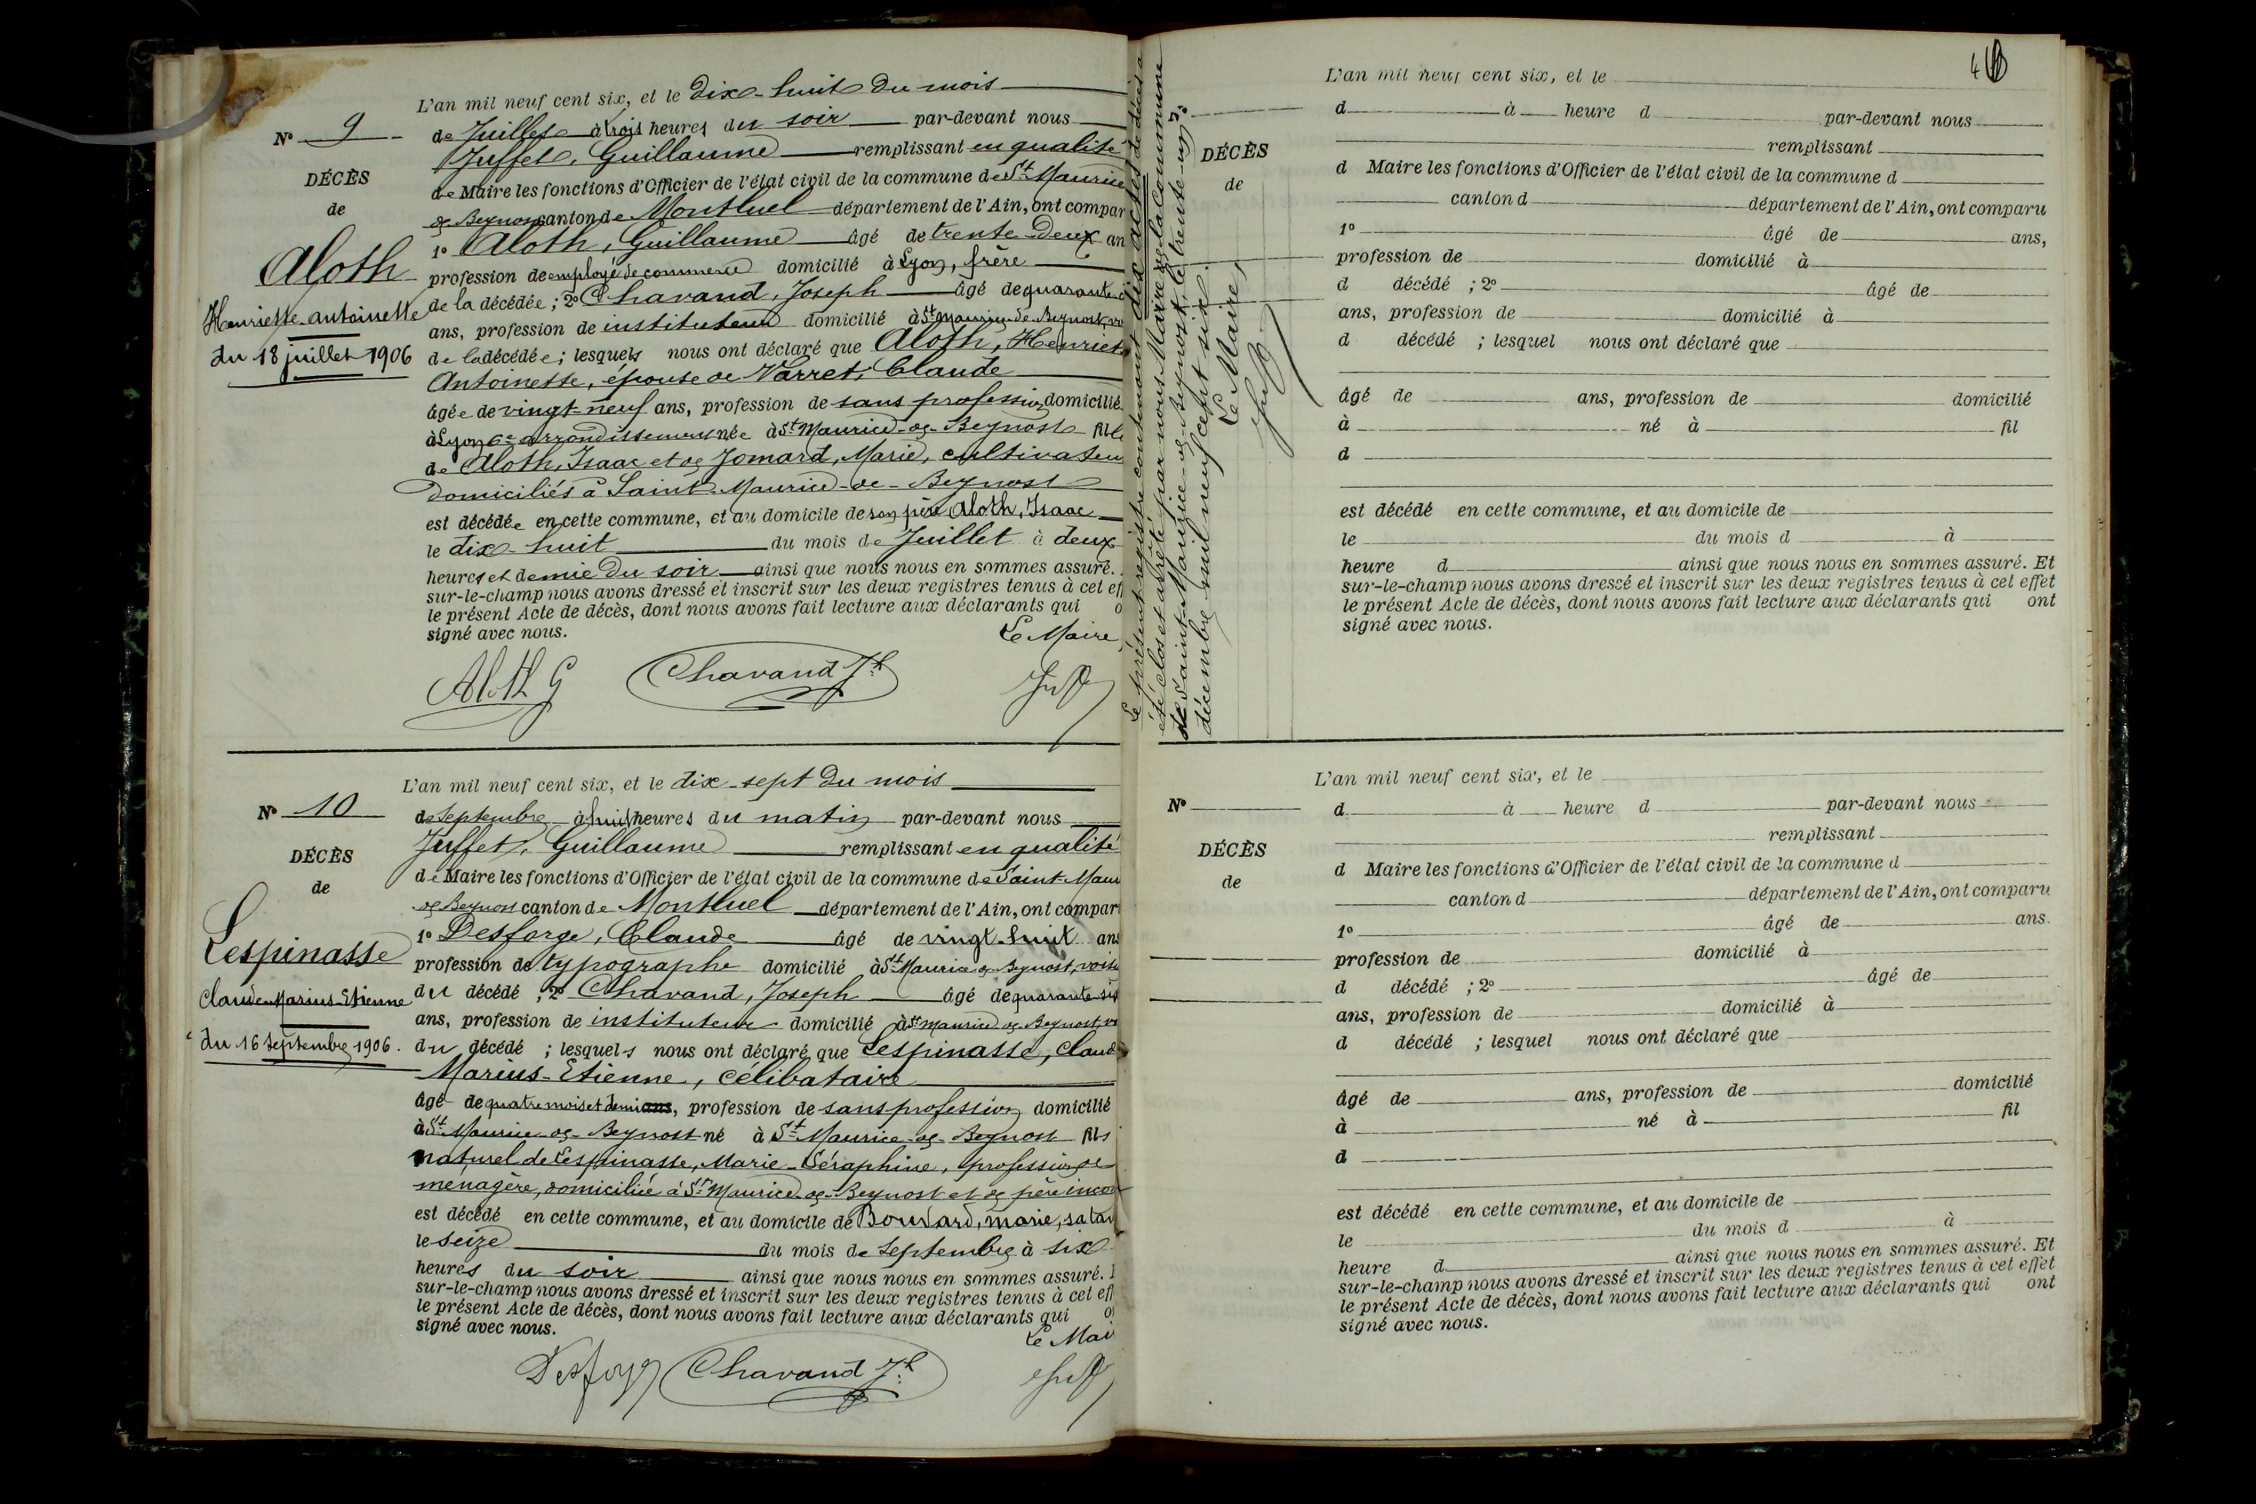 L'an mil neuf cent six, et le dix-huit du mois
de Juillet à trois heures du soir par-devant nous
Juffet, Guillaume remplissant en qualité
de Maire les fonctions d'Officier de l'état civil de la commune de St Maurice
de Beynost canton de Montluel département de l'Ain, ont compar
1º Aloth, Guillaume âgé de trente-deux an
profession de employé de commerce domicilié à Lyon, frère
de la décédée ; 2º Chavand, Joseph âgé de quarante
ans, profession de instituteur domicilié à St Maurice-de-Beynost, vo
de la décédée ; lesquels nous ont déclaré que Aloth, Henriet
Antoinette, épouse de Varret, Claude
âgée de vingt-neuf ans, profession de sans profession domicilié
à Lyon 6e arrondissement née à St Maurice-de-Beynost fille
de Aloth, Isaac et de Jomard, Marie, cultivateu
domiciliés à Saint-Maurice-de-Beynost
est décédée en cette commune, et au domicile de son père Aloth, Isaac
le dix-huit du mois de Juillet à deux
heures et demie du soir ainsi que nous nous en sommes assuré.
sur-le-champ nous avons dressé et inscrit sur les deux registres tenus à cet eff
le présent Acte de décès, dont nous avons fait lecture aux déclarants qui o
signé avec nous.
Le Maire
Aloth G Chavand Jh
Nº 9
DÉCÈS
de
Aloth
Henriette-Antoinette
du 18 juillet 1906
L'an mil neuf cent six, et le dix-sept du mois
de Septembre à huit heures du matin par-devant nous
Juffet, Guillaume remplissant en qualité
de Maire les fonctions d'Officier de l'état civil de la commune de Saint-Maur
de Beynost canton de Montluel département de l'Ain, ont compar
1º Desforge, Claude âgé de vingt-huit ans
profession de typographe domicilié à St Maurice de Beynost, voisi
du décédé ; 2º Chavand, Joseph âgé de quarante-six
ans, profession de instituteur domicilié à St Maurice de Beynost, vo
du décédé ; lesquels nous ont déclaré que Lespinasse, Claud
Marius-Etienne, célibataire
âgé de quatre mois et demi ans, profession de sans profession domicilié
à St Maurice-de-Beynost né à St Maurice-de-Beynost fils
naturel de Lespinasse, Marie-Séraphine, profession de
ménagère, domiciliée à St Maurice-de-Beynost et de père incon
est décédé en cette commune, et au domicile de Bouvard, Marie, sa tan
le seize du mois de Septembre à six
heures du soir ainsi que nous nous en sommes assuré.
sur-le-champ nous avons dressé et inscrit sur les deux registres tenus à cet eff
le présent Acte de décès, dont nous avons fait lecture aux déclarants qui o
signé avec nous.
Le Mai
Desforge Chavand Jh
Nº 10
DÉCÈS
de
Lespinasse
Claude-Marius-Etienne
du 16 Septembre 1906.
Le présent registre contenant dix actes de décès a
été clos et arrêté par nous Maire de la commune
de Saint-Maurice-de-Beynost, le trente-un
décembre mil neuf cent six.
Le Maire,
L'an mil neuf cent six, et le
d à heure d par-devant nous
remplissant
d Maire les fonctions d'Officier de l'état civil de la commune d
canton d département de l'Ain, ont comparu
1º âgé de ans,
profession de domicilié à
d décédé ; 2º âgé de
ans, profession de domicilié à
d décédé ; lesquel nous ont déclaré que
âgé de ans, profession de domicilié
à né à fil
d
est décédé en cette commune, et au domicile de
le du mois d à
heure d ainsi que nous nous en sommes assuré. Et
sur-le-champ nous avons dressé et inscrit sur les deux registres tenus à cet effet
le présent Acte de décès, dont nous avons fait lecture aux déclarants qui ont
signé avec nous.
DÉCÈS
de
L'an mil neuf cent six, et le
Nº
d à heure d par-devant nous
remplissant
DÉCÈS
de
d Maire les fonctions d'Officier de l'état civil de la commune d
canton d département de l'Ain, ont comparu
1º âgé de ans.
profession de domicilié à
d décédé ; 2º âgé de
ans, profession de domicilié à
d décédé ; lesquel nous ont déclaré que
âgé de ans, profession de domicilié
à né à fil
d
est décédé en cette commune, et au domicile de
le du mois d à
heure d ainsi que nous nous en sommes assuré. Et
sur-le-champ nous avons dressé et inscrit sur les deux registres tenus à cet effet
le présent Acte de décès, dont nous avons fait lecture aux déclarants qui ont
signé avec nous.